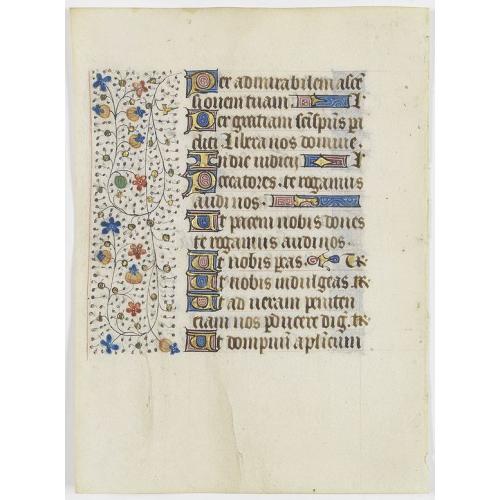 Per admirabilem ascē
sionem tuam. l̄.
Per gratiam sc̄i sp̄us pa
cliti Libera nos domine.
In die iudicij l̄
Peccatores. te rogamus
audi nos.
Ut pacem nobis dones
te rogamus audi nos.
Ut nobis p̄cas. te r̄
Ut nobis indulgeas. te r̄
Ut ad veram peniten
ciam nos p̄ducere dig. te r̄
Ut dompnū ap̄licum